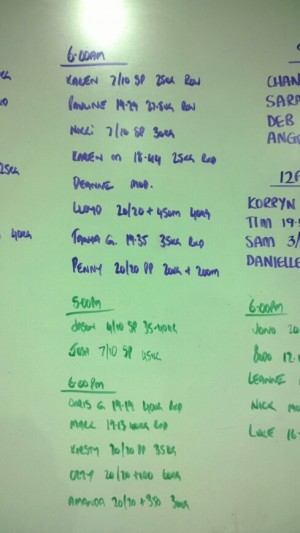 6:00AM
KAREN 7/10 SP 25KG ROW
PAULINE 19:29 27.5KG ROW
NICKI 7/10 SP 30KG
KAREN M 18:44 25KG RXD
DEANNE MOD.
LLOYD 20/20 + 450M 40KG
TANIA G. 19:35 35KG RXD
PENNY 20/20 PP 20KG + 200M
5:00PM
JASON 4/10 SP 35-40KG
JOSH 7/10 SP 45KG
6:00PM
CHRIS G. 19:19 40KG RXD
MARC 19:13 40KG RXD
KIRSTY 20/20 PP 35KG
20/20 +100 60KG
AMANDA 20/20 + 350 30KG
25KG
40KG
CHAN
SARA
DEB
ANG
12P
KORRYN
TIM 19:
SAM 3/
DANIELLE
6:00PM
JONO 20
12:
LEANNE
NICK
LUKE 16: